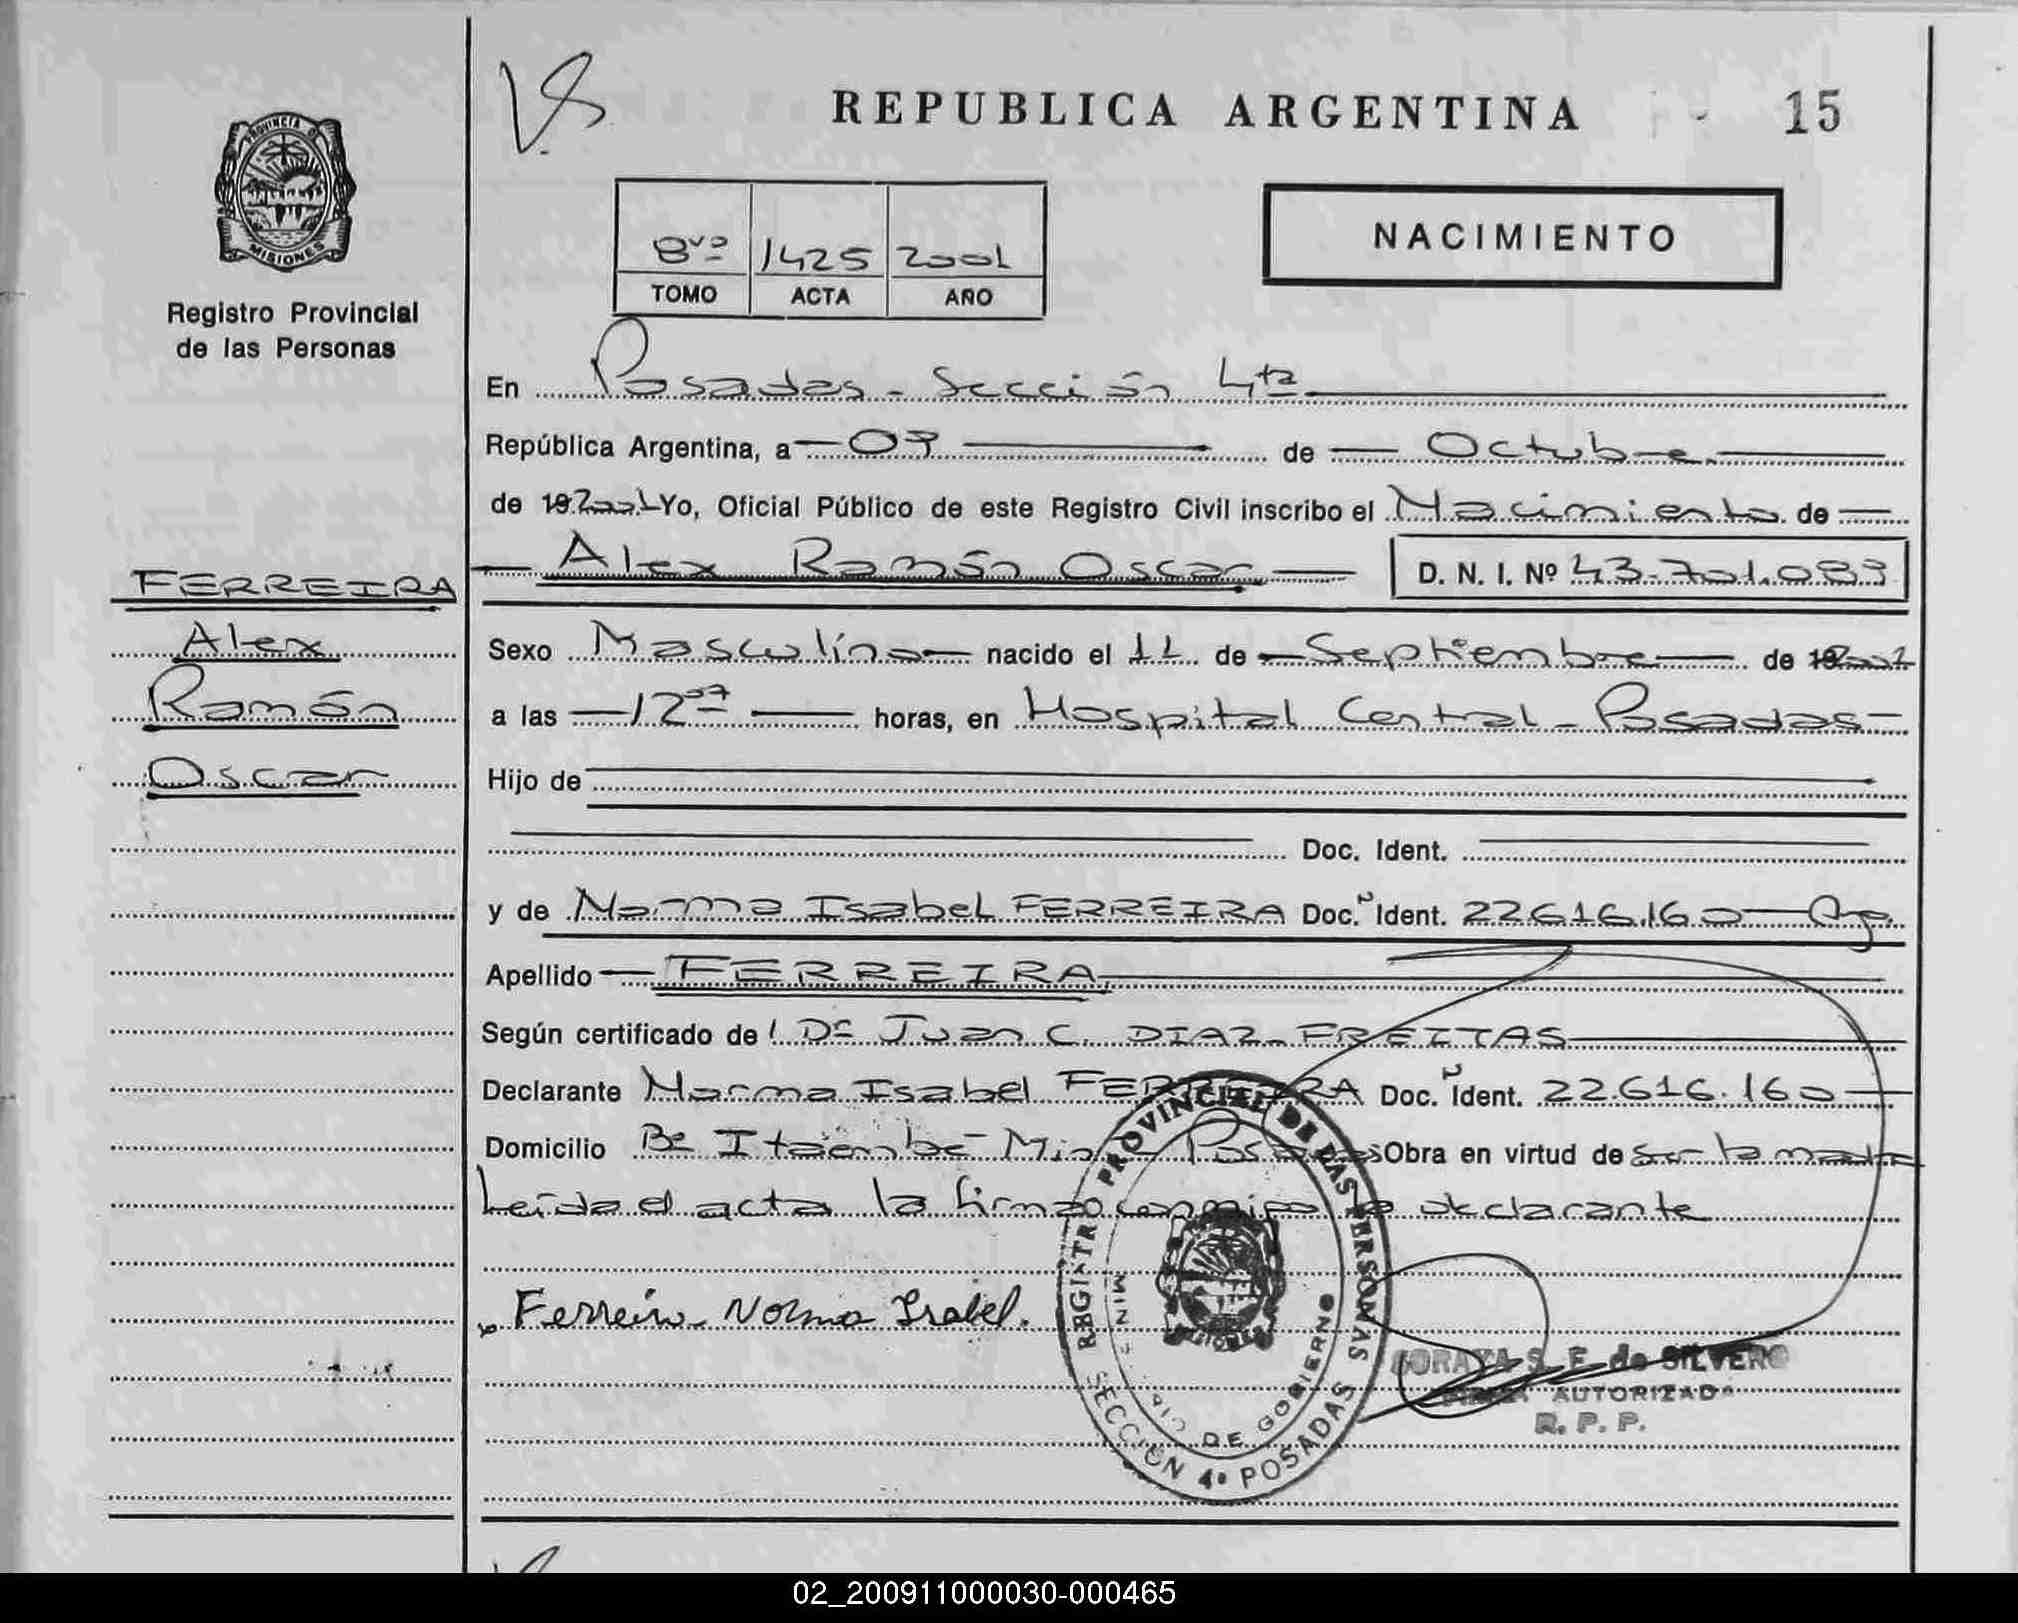 REPUBLICA ARGENTINA
15
PROVINCIA DE
MISIONES
Registro Provincial
de las Personas
8vo 1425 2001
TOMO ACTA AÑO
NACIMIENTO
En Posadas - Sección 4ta
República Argentina, a 03 de Octubre
de 19 2001 Yo, Oficial Público de este Registro Civil inscribo el Nacimiento de
Alex Ramón Oscar D. N. I. Nº 43.701.083
FERREIRA
Alex
Ramón
Oscar
Sexo Masculino nacido el 11 de Septiembre de 19 2001
a las 12 horas, en Hospital Central - Posadas
Hijo de
Doc. Ident.
y de Norma Isabel FERREIRA Doc. Ident. 22.616.160 Arg.
Apellido FERREIRA
Según certificado de Dr Juan C. DIAZ FREITAS
Declarante Norma Isabel FERREIRA Doc. Ident. 22.616.160
Domicilio Bo Itaembé Miní Posadas Obra en virtud de ser la madre
Leída el acta la firma conmigo la declarante
Ferreira Norma Isabel.
REGISTRO PROVINCIAL DE LAS PERSONAS
MINISTERIO DE GOBIERNO
MISIONES
SECCIÓN 4ª POSADAS
SORAYA S. F. de SILVERO
FIRMA AUTORIZADA
R. P. P.
02_200911000030-000465